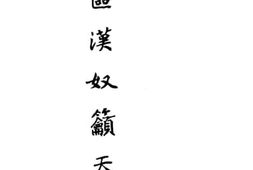 區漢奴籲天